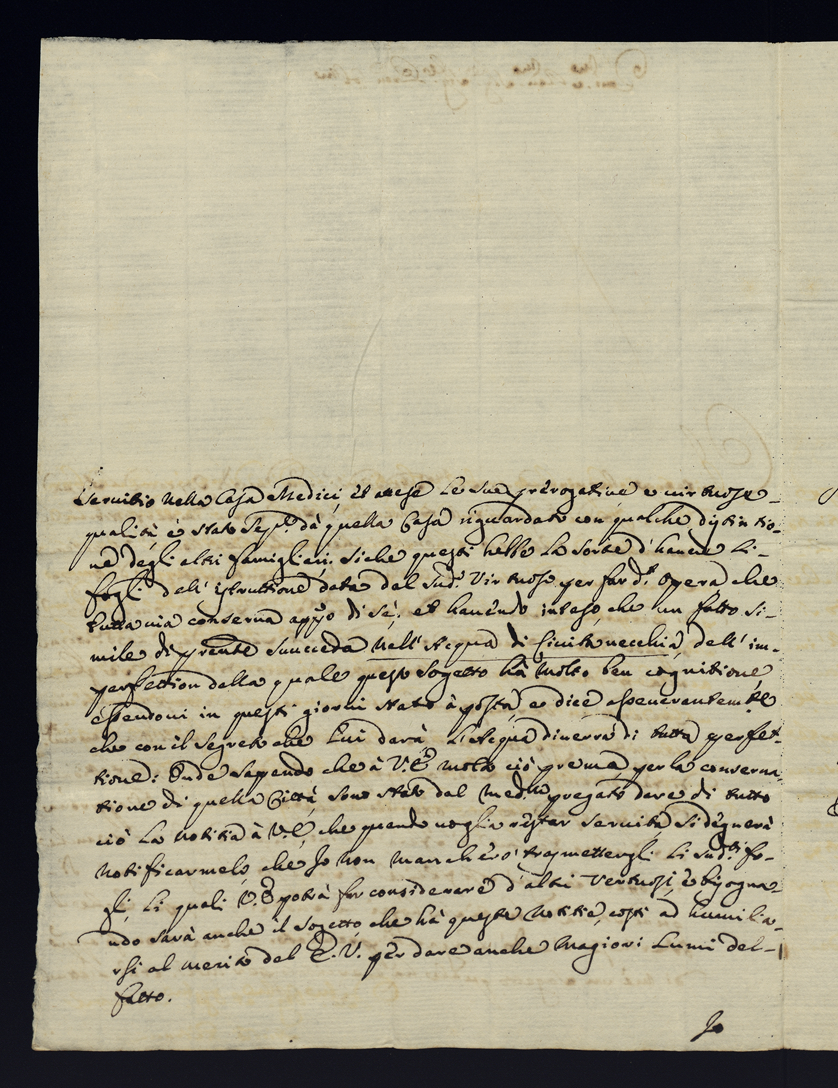 Servitio nella Casa Medici, et attese le sue prerogative e virtuose
qualità è stato sep.e dà quella Casa riguardato con qualche distintio-
ne degli altri famiglieri. Siche questi hebbe la sorte d'havere li
fogli dell'istruttione data dal sud.o Virtuoso per far d.a opera che
tutta via conserva app.o di sé, et havendo inteso che un fatto si-
mile di p̃rente succeda nell'Acqua di Civitavecchia, dell'im-
perfettion della quale questo sogetto hà molto ben cognitione
essendovi in questi giorni stato à posta, e dice asseverentem.te
che con il segreto che lui darà l'Acqua diverrà di tutta perfet-
tione: Onde sapendo che à V.E. molto ciò prema per la conserva-
tione di quella Città, sono stato dal med.mo pregato dare di tutto
ciò la notitia à V.E. che quando voglia restar servita, si degnerà
notificarmelo, che Io non mancherò trasmettergli li sud.ti fo-
gli, li quali V.E. potrà far considerare d'altri Vertuosi, e bisogna-
ndo sarà anche il sogetto, che hà queste notitie, costi ad humilia-
rsi al merito del E.V. per dare anche magiori lumi del
fatto.
Io